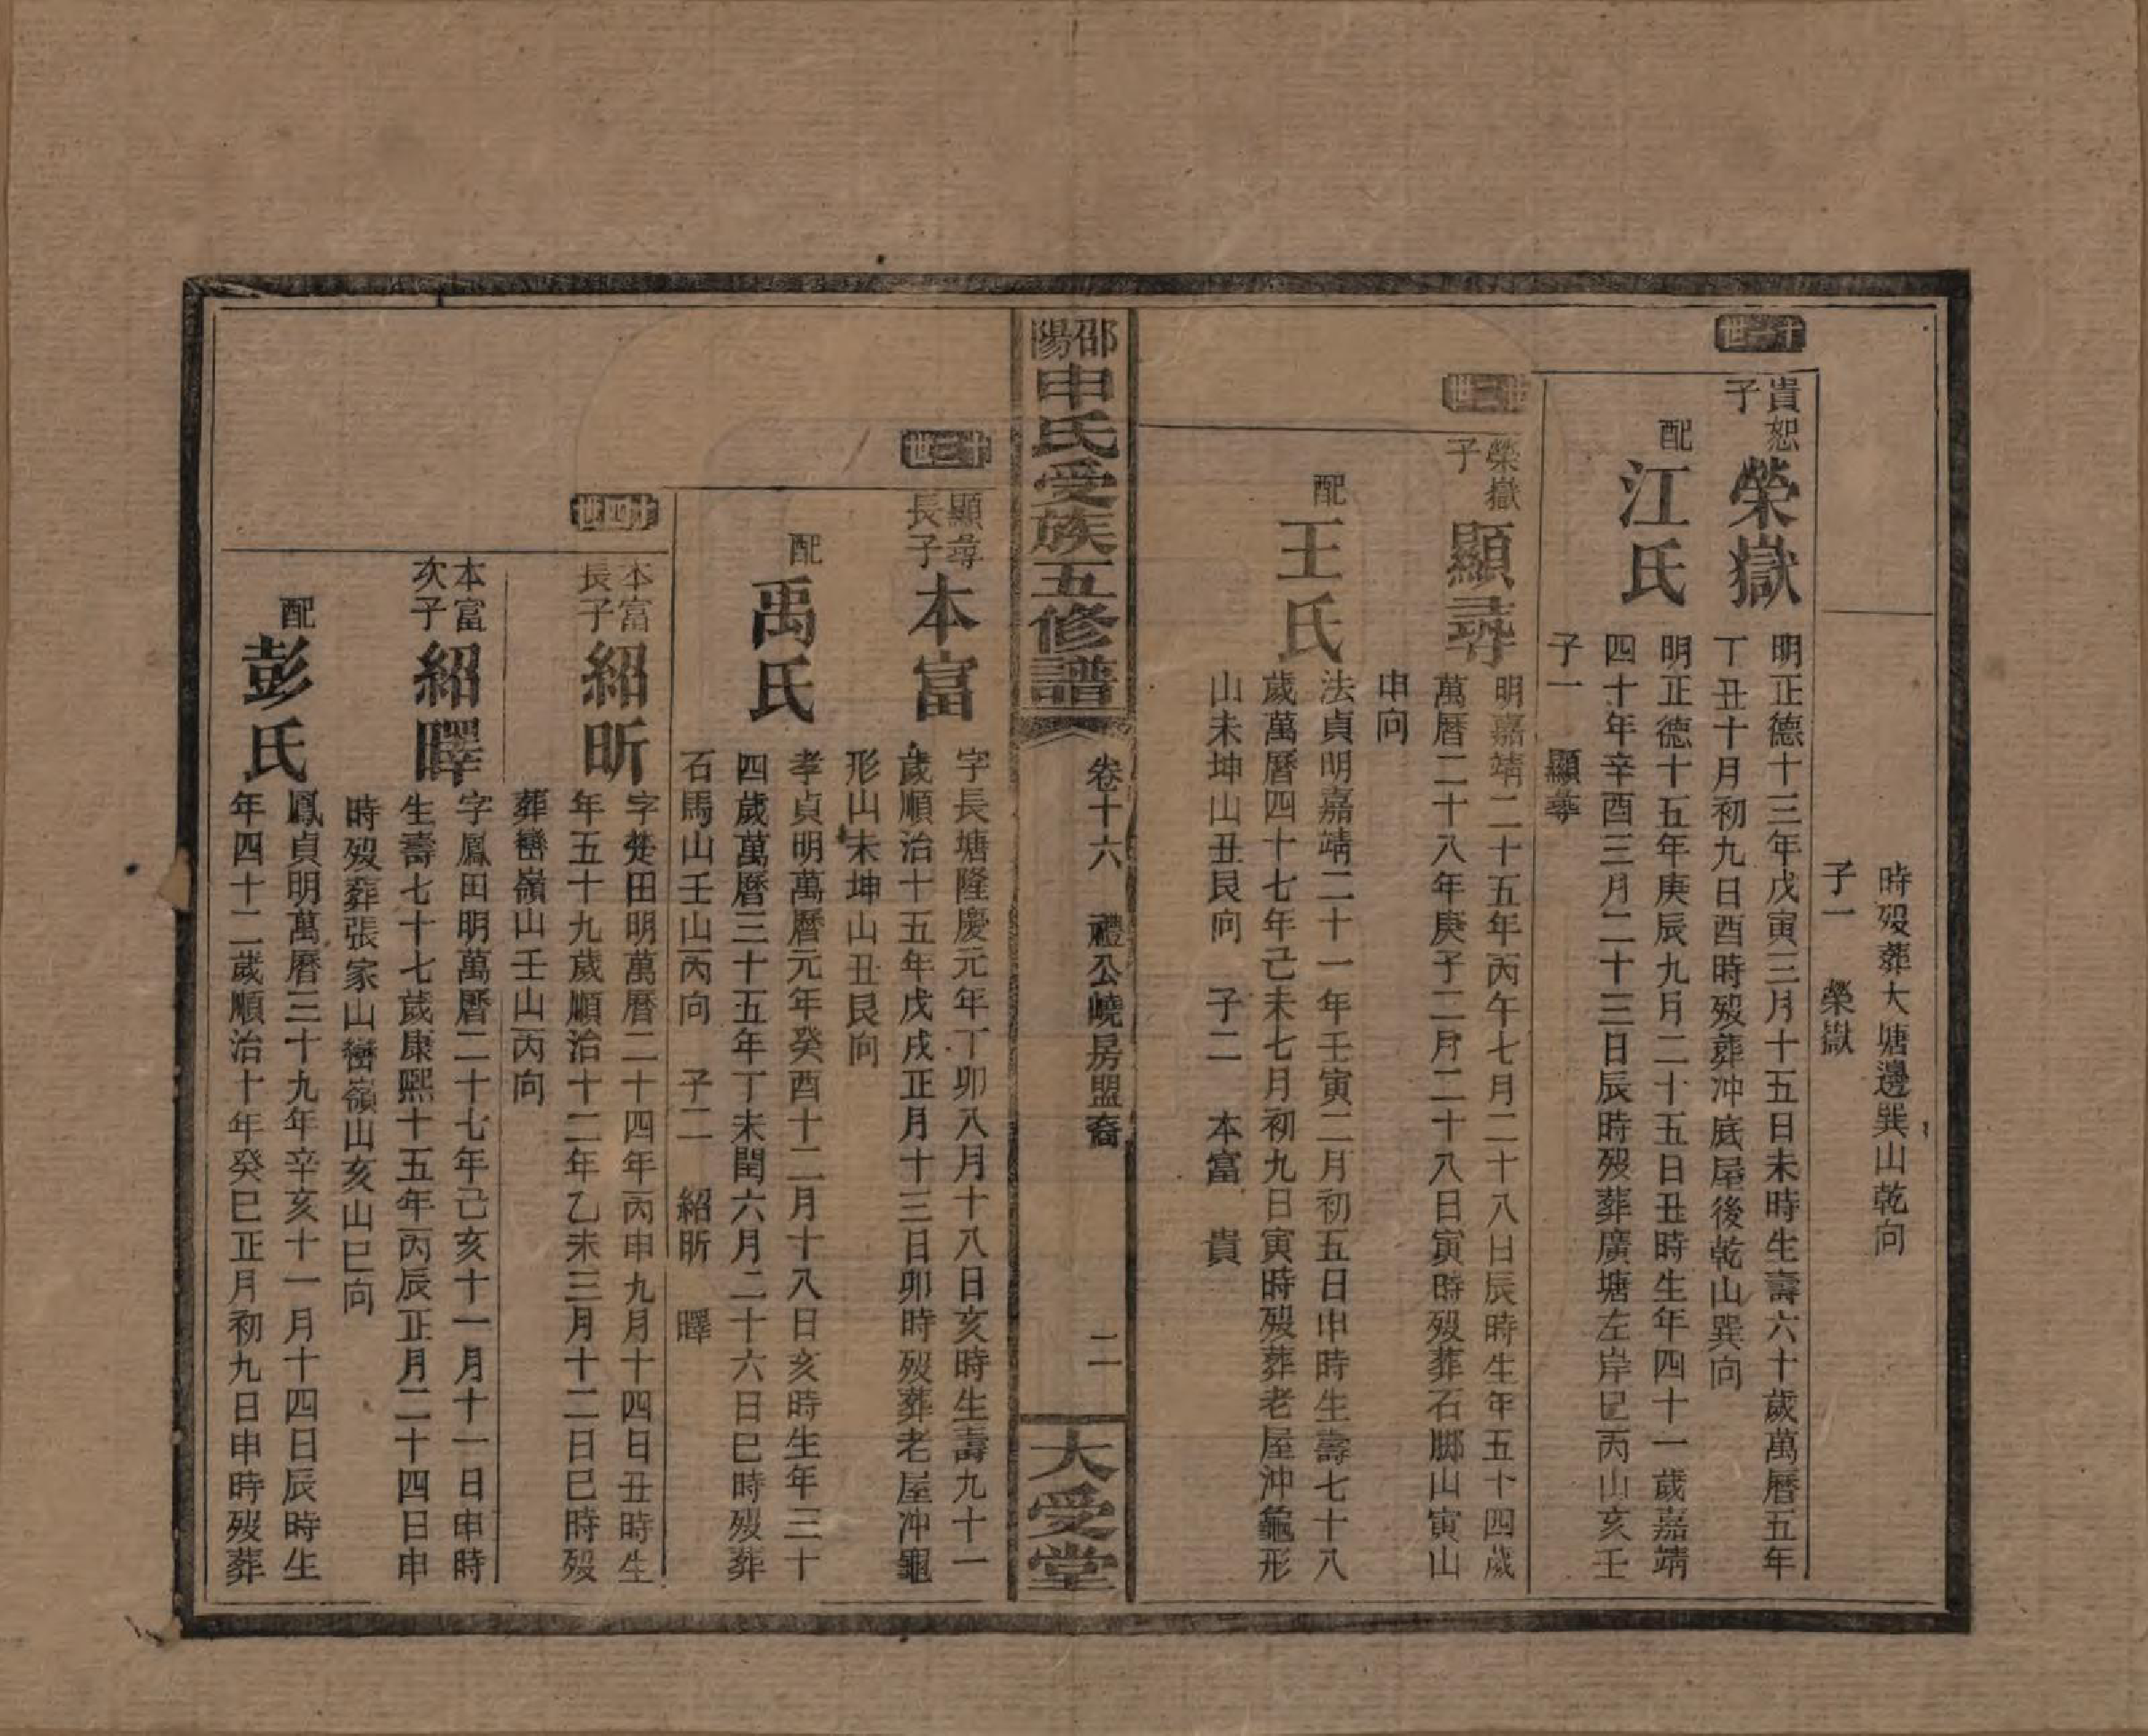 時歿葬大塘邊巽山乾向
子一　榮嶽
十一世
貴恕子
榮嶽
明正德十三年戊寅三月十五日未時生壽六十歲萬曆五年
丁丑十月初九日酉時歿葬冲底屋後乾山巽向
配
江氏
明正德十五年庚辰九月二十五日丑時生年四十一歲嘉靖
四十年辛酉三月二十三日辰時歿葬廣塘左岸巳丙山亥壬
子一　顯尋
十二世
榮嶽子
顯尋
明嘉靖二十五年丙午七月二十八日辰時生年五十四歲
萬曆二十八年庚子二月二十八日寅時歿葬石腳山寅山
申向
配
王氏
法貞明嘉靖二十一年壬寅二月初五日申時生壽七十八
歲萬曆四十七年己未七月初九日寅時歿葬老屋沖龜形
山未坤山丑艮向　子二　本富　貴
邵陽申氏受族五修譜
卷十六　禮公嶢房盟裔
二
大受堂
十三世
顯尋長子
本富
字長塘隆慶元年丁卯八月十八日亥時生壽九十一
歲順治十五年戊戌正月十三日卯時歿葬老屋冲龜
形山未坤山丑艮向
配
禹氏
孝貞明萬曆元年癸酉十二月十八日亥時生年三十
四歲萬曆三十五年丁未閏六月二十六日巳時歿葬
石馬山壬山丙向　子二　紹昕　曎
十四世
本富長子
紹昕
字楚田明萬曆二十四年丙申九月十四日丑時生
年五十九歲順治十二年乙未三月十二日巳時歿
葬巒嶺山壬山丙向
本富次子
紹曎
字鳳田明萬曆二十七年己亥十一月十一日申時
生壽七十七歲康熙十五年丙辰正月二十四日申
時歿葬張家山巒嶺山亥山巳向
配
彭氏
鳳貞明萬曆三十九年辛亥十一月十四日辰時生
年四十二歲順治十年癸巳正月初九日申時歿葬